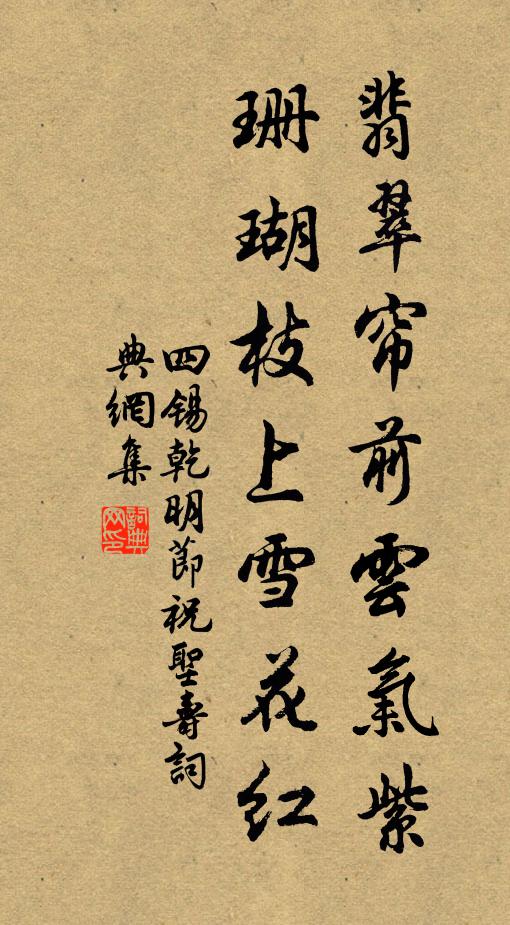 翡翠帘前雲氣紫
珊瑚枝上雪花紅
四錫乾明節祝聖壽詞
典網集
詞典網印